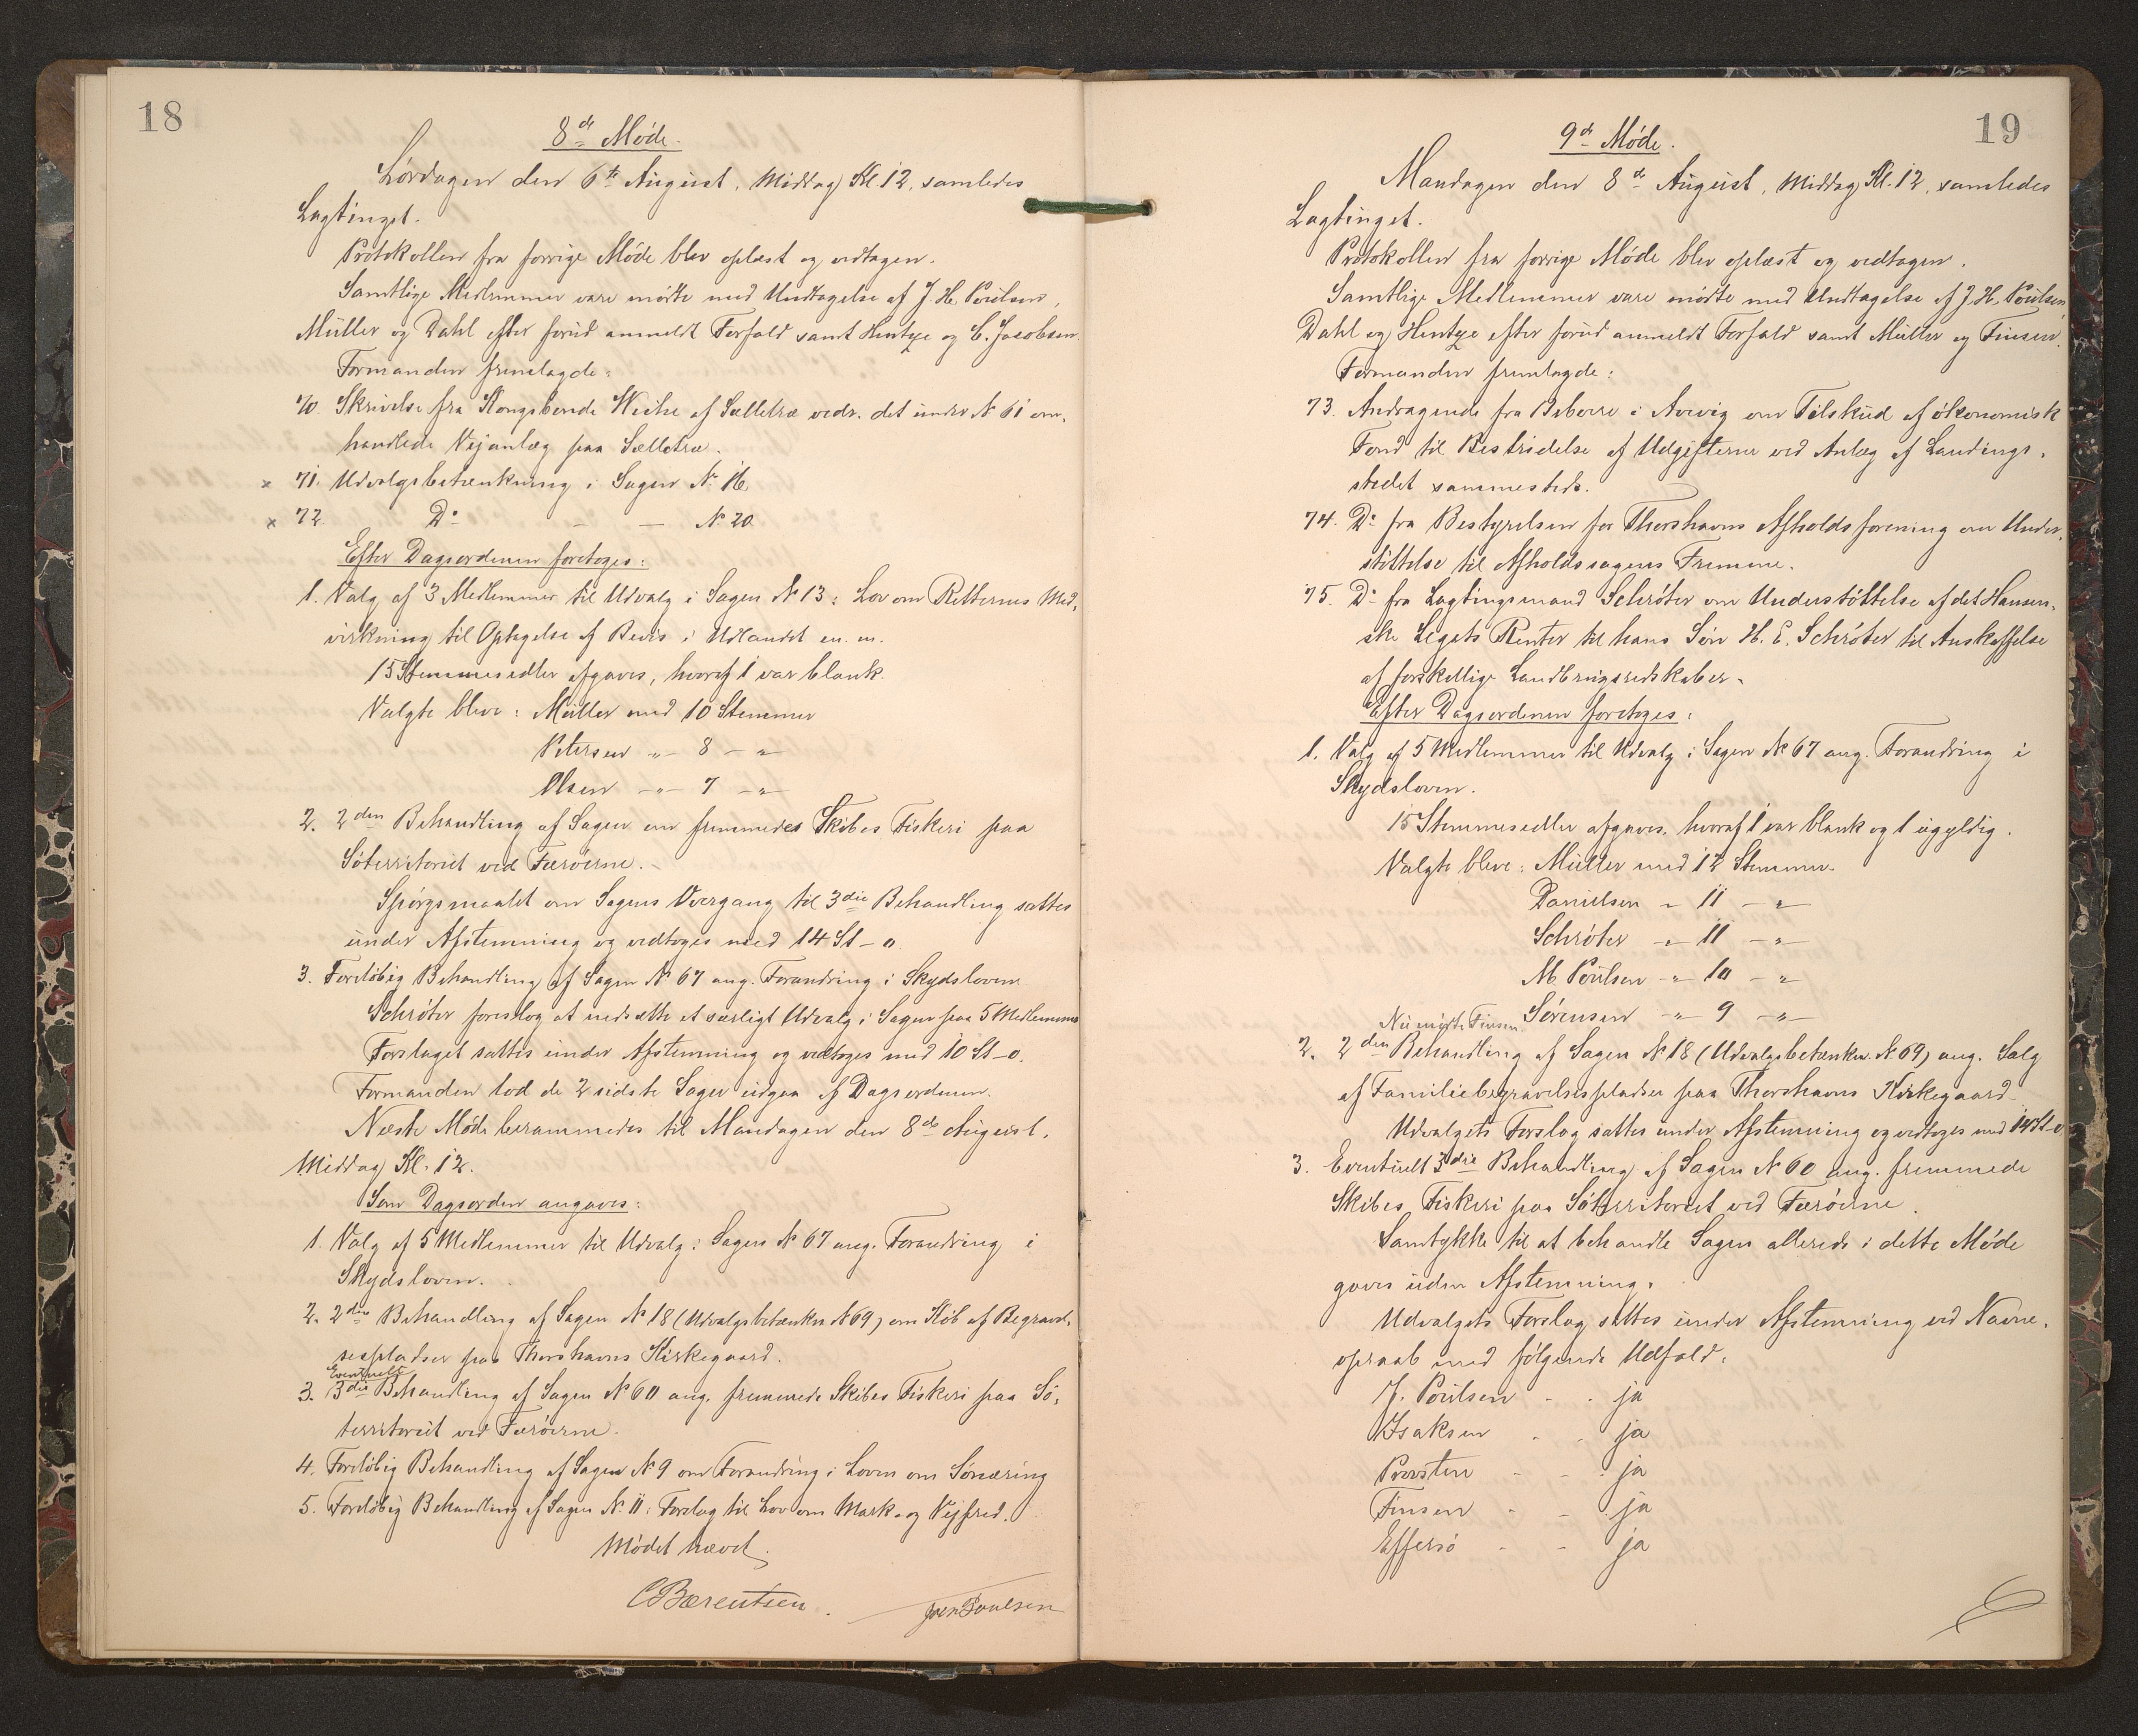 18
8de Møde.
Lørdagen den 6te August, Middag Kl. 12, samledes
Lagtinget.
Protokollen fra forrige Møde blev oplæst og vedtagen.
Samtlige Medlemmer vare mødte med Undtagelse af J. H. Poulsen,
Müller og Dahl efter forud anmeldt Forfald samt Hentze og C. Jacobsen.
Formanden fremlagde:
70. Skrivelse fra Kongsbonde Weihe af Selletræ vedr. det under № 61 om-
handlede Vejanlæg paa Selletræ.
x 71. Udvalgsbetænkning i Sagen № 16.
x 72. Do - — № 20.
Efter Dagsordenen foretoges:
1. Valg af 3 Medlemmer til Udvalg i Sagen № 13: Lov om Retternes Med-
virkning til Optagelse af Bevis i Udlandet m. m.
15 Stemmesedler afgaves, hvoraf 1 var blank.
Valgte bleve: Müller med 10 Stemmer
Petersen -"- 8 -"-
Olsen -"- 7 -"-
2. 2den Behandling af Sagen om fremmedes Skibes Fiskeri paa
Søterritoriet ved Færøerne.-
Spørgsmaalet om Sagens Overgang til 3die Behandling sattes
under Afstemning og vedtoges med 14 St - o.
3. Foreløbig Behandling af Sagen № 67 ang. Forandring i Skydsloven
Schrøter foreslog at nedsætte et særligt Udvalg i Sagen paa 5 Medlemmer
Forslaget sattes under Afstemning og vedtoges med 10 St - o.
Formanden lod de 2 sidste Sager udgaa af Dagsordenen.
Næste Møde berammedes til Mandagen den 8de August,
Middag Kl. 12.
Som Dagsorden angaves:
1. Valg af 5 Medlemmer til Udvalg i Sagen № 67 ang. Forandring i
Skydsloven.
2. 2den Behandling af Sagen № 18 (Udvalgsbetænkn № 69) om Køb af Begravel-
sespladser paa Thorshavns Kirkegaard.
Eventuelt
3. 3die Behandling af Sagen № 60 ang. fremmede Skibes Fiskeri paa Sø-
territoriet ved Færøerne.
4. Foreløbig Behandling af Sagen № 9 om Forandring i Loven om Sønæring
5. Foreløbig Behandling af Sagen № 11: Forslag til Lov om Mark- og Vejfred.
Mødet hævet.
C Bærentsen. Joen Poulsen
19
9de Møde.
Mandagen den 8de August, Middag Kl. 12, samledes
Lagtinget.
Protokollen fra forrige Møde blev oplæst og vedtagen.
Samtlige Medlemmer vare mødte med Undtagelse af J. H. Poulsen,
Dahl og Hentze efter forud anmeldt Forfald samt Müller og Finsen.
Formanden fremlagde:
73. Andragende fra Beboere i Arvig om Tilskud af økonomisk
Fond til Bestridelse af Udgifterne ved Anlæg af Landings-
stedet sammesteds.
74. Do fra Bestyrelsen for Thorshavns Afholdsforening om Under-
støttelse til Afholdssagens Fremme.
75. Do fra Lagtingsmand Schrøter om Understøttelse af det Hansen-
ske Legats Renter til hans Søn H. E. Schrøter til Anskaffelse
af forskellige Landbrugsredskaber.
Efter Dagsordenen foretoges:
1. Valg af 5 Medlemmer til Udvalg i Sagen № 67 ang. Forandring i
Skydsloven.
15 Stemmesedler afgaves, hvoraf 1 var blank og 1 ugyldig.
Valgte bleve: Müller med 12 Stemmer.
Danielsen - 11 -"-
Schrøter -"- 11 -"-
M. Poulsen -"- 10 -"-
Nu mødte Finsen. Sørensen -"- 9 -"-
2. 2den Behandling af Sagen № 18 (Udvalgsbetænkn. № 69) ang. Salg
af Familiebegravelsespladser paa Thorshavns Kirkegaard.
Udvalgets Forslag sattes under Afstemning og vedtoges med 14 St - o
3. Eventuelt 3die Behandling af Sagen № 60 ang. fremmede
Skibes Fiskeri paa Søterritoriet ved Færøerne.
Samtykke til at behandle Sagen allerede i dette Møde
gaves uden Afstemning.
Udvalgets Forslag sattes under Afstemning ved Navne-
opraab med følgende Udfald:
J. Poulsen - - ja
Isaksen - - ja
Provsten - - ja
Finsen - - ja
Effersø - - ja